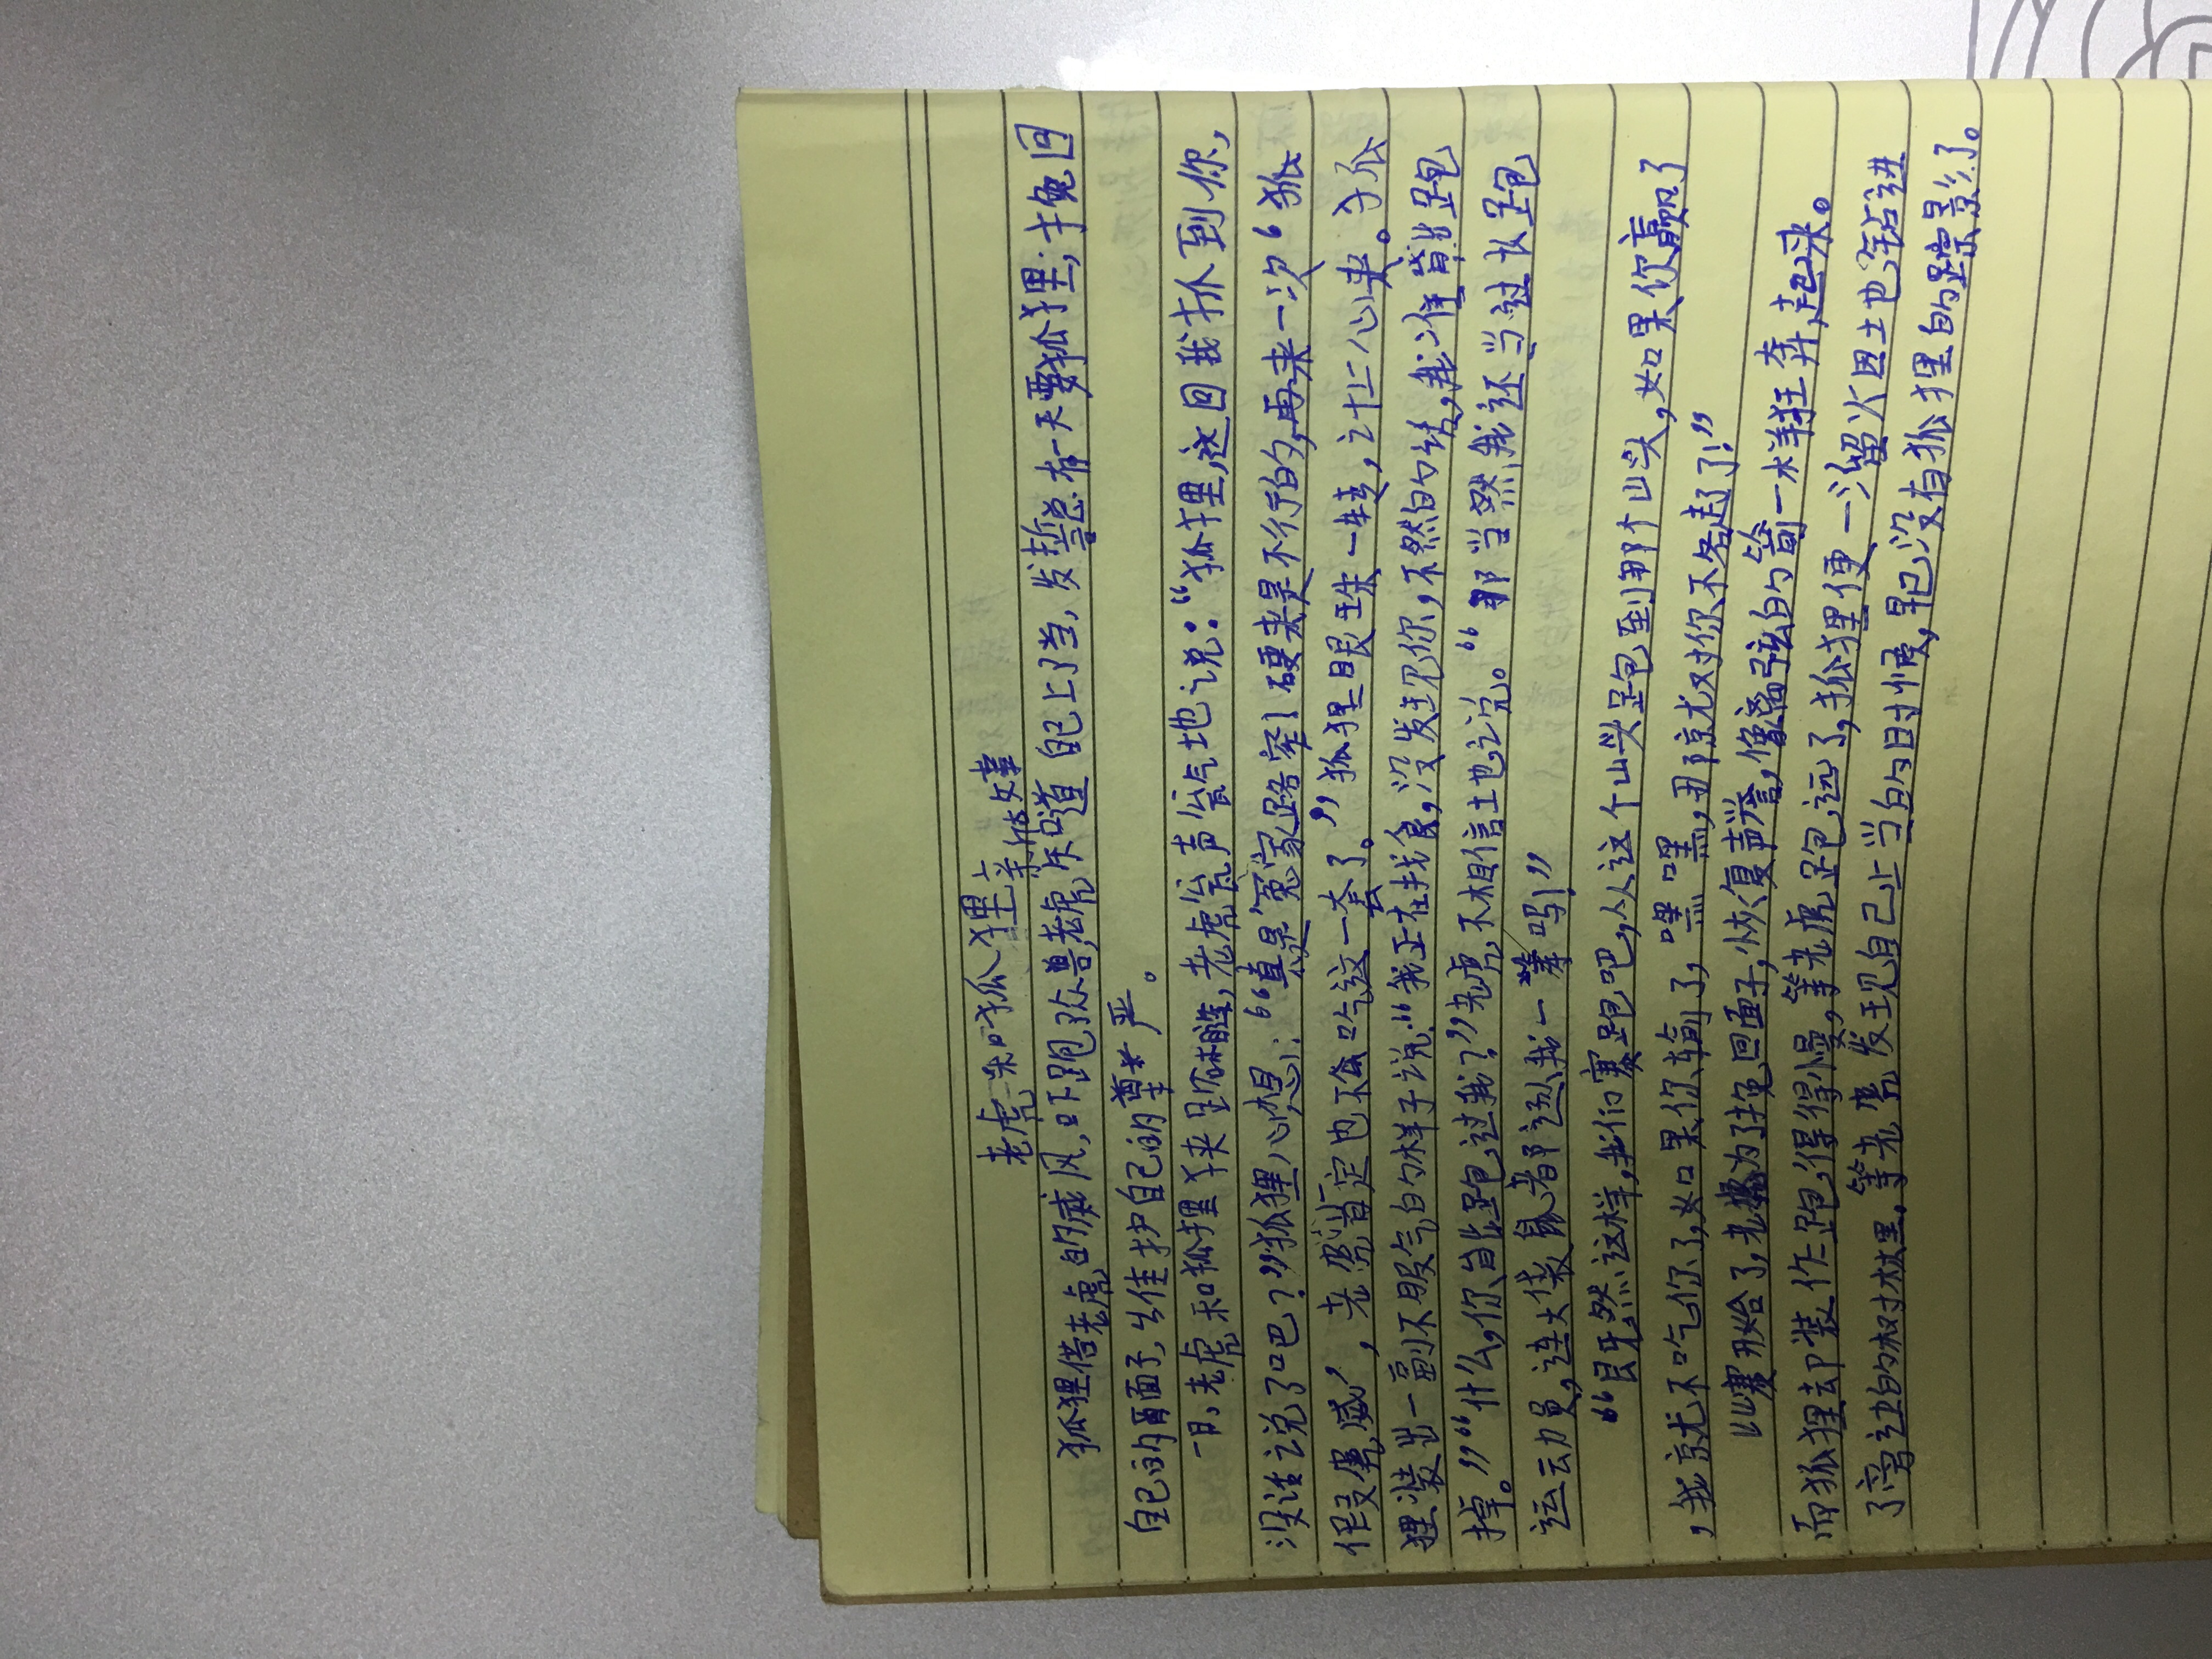 老虎和狐狸上
新故事
狐狸借老虎的威风,吓跑了众兽,老虎知道自己上了当,发誓总有一天要狐狸,挽回
自己的面子,维护自己的尊严。
一日,老虎和狐狸狭路相逢,老虎瓮声瓮气地说:“狐狸,这回我抓到你,
没话说了吧?”狐狸心想:“真是冤家路窄!硬来是不行的,再来一次‘狐
假虎威’,老虎肯定也不会吃这一套了。”狐狸眼珠一转,计上心来。狐
狸装出一副不服气的样子说:“我正在找食,没发现你,不然的话,我准能跑
掉。”“什么,你能跑过我?”老虎不相信地说。“那当然,我还当过长跑
运动员,连大袋鼠都逊我一筹呢!”
“既然这样,我们赛跑吧,从这个山头跑到那个山头,如果你赢了
,我就不吃你了,如果你输了,嘿嘿,那就对你不客起了!”
比赛开始了,老虎为了挽回面子,恢复声誉,像离弦的箭一样狂奔起来。
而狐狸却装作跑得慢,等老虎跑远了,狐狸便一溜烟地钻进
了旁边的树林里,等老虎发现自己上当的时候,早已没有狐狸的踪影了。